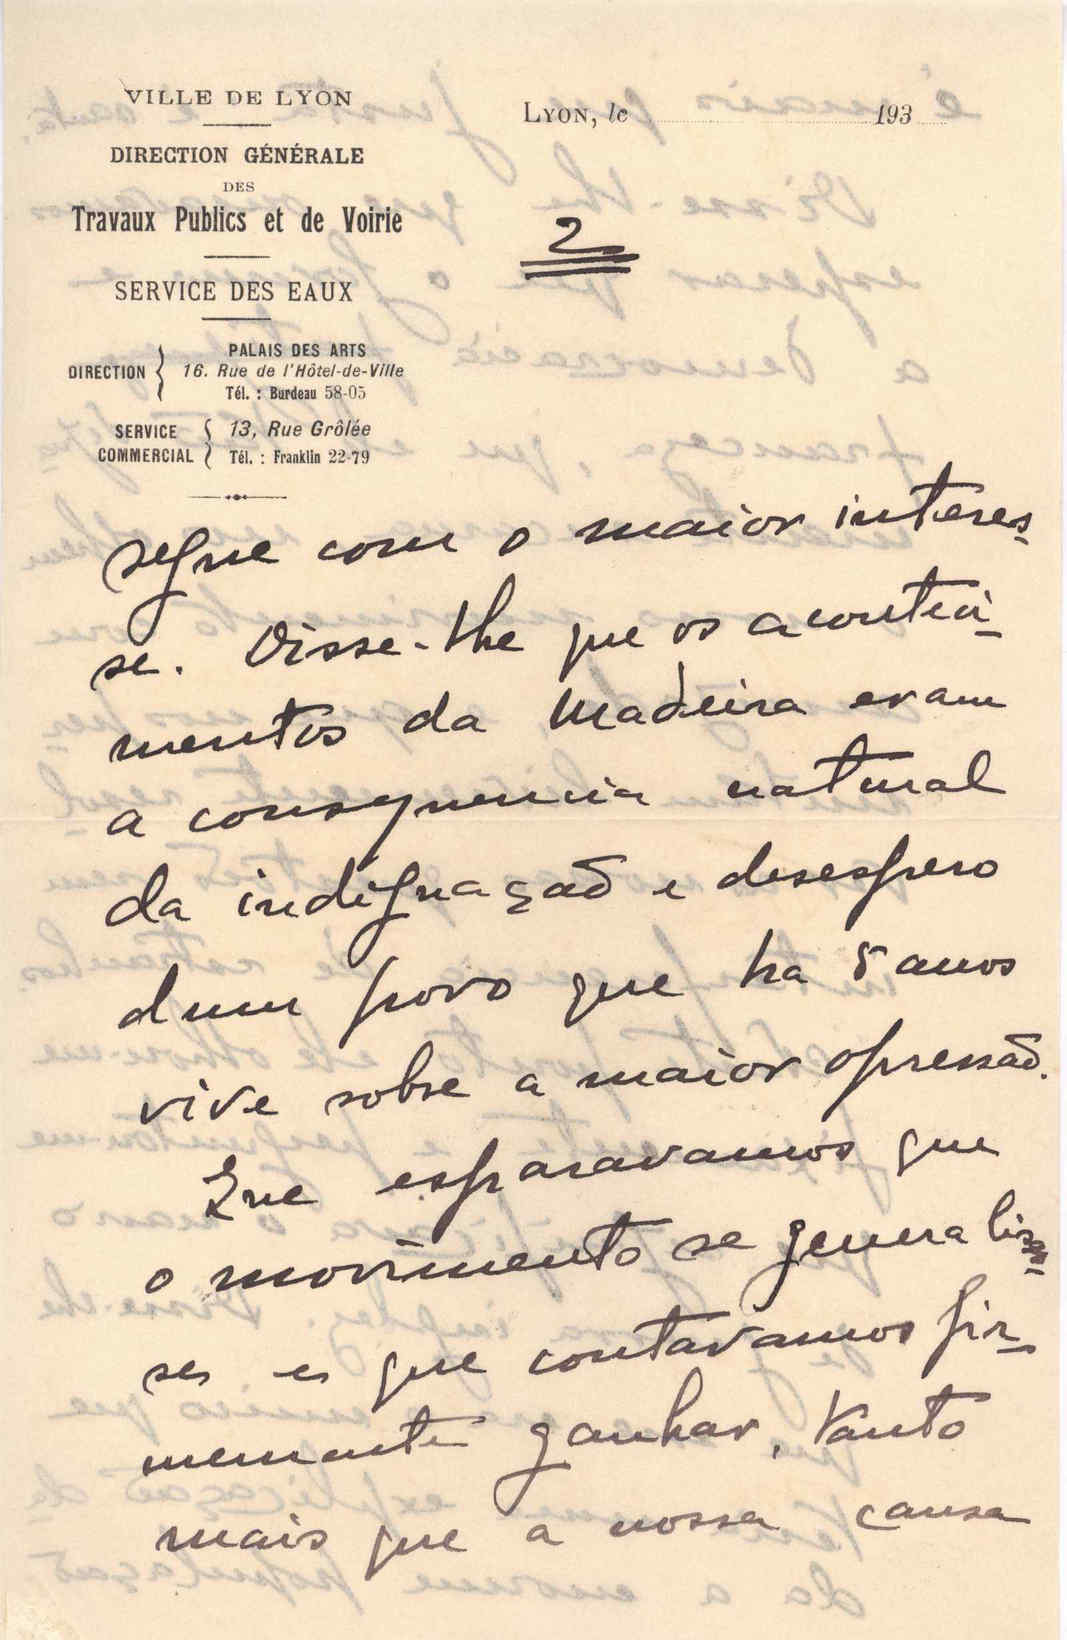 VILLE DE LYON
DIRECTION GÉNÉRALE
DES
Travaux Publics et de Voirie
SERVICE DES EAUX
DIRECTION
PALAIS DES ARTS
16. Rue de l'Hôtel-de-Ville
Tél. : Burdeau 58-05
SERVICE COMMERCIAL
13, Rue Grôlée
Tél. : Franklin 22-79
LYON, le 193
2
segue com o maior interes-
se. Disse-lhe que os aconteci-
mentos da Madeira eram
a consequencia natural
da indignação e desespero
dum povo que ha 5 anos
vive sobre a maior opressão.
Que esparavamos que
o movimento se generalisas-
se e que contavamos fir-
memente ganhar. Tanto
mais que a nossa causa